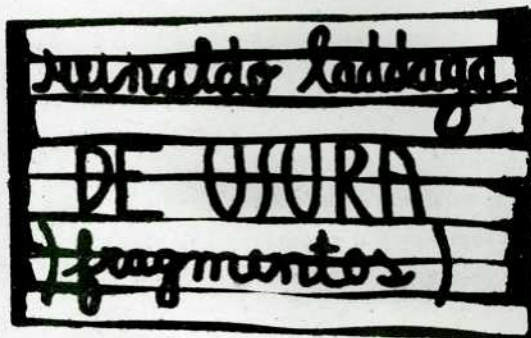 reinaldo laddaga
DE USURA
)fragmentos)